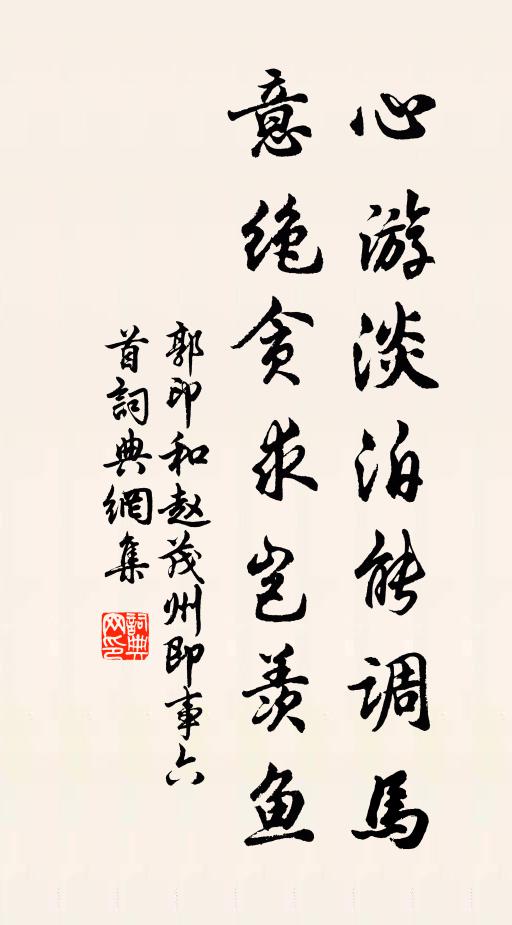 心游淡泊能調馬
意绝贪求岂羡鱼
郭印和赵茂州即事六
首詞典網集
詞典
网印